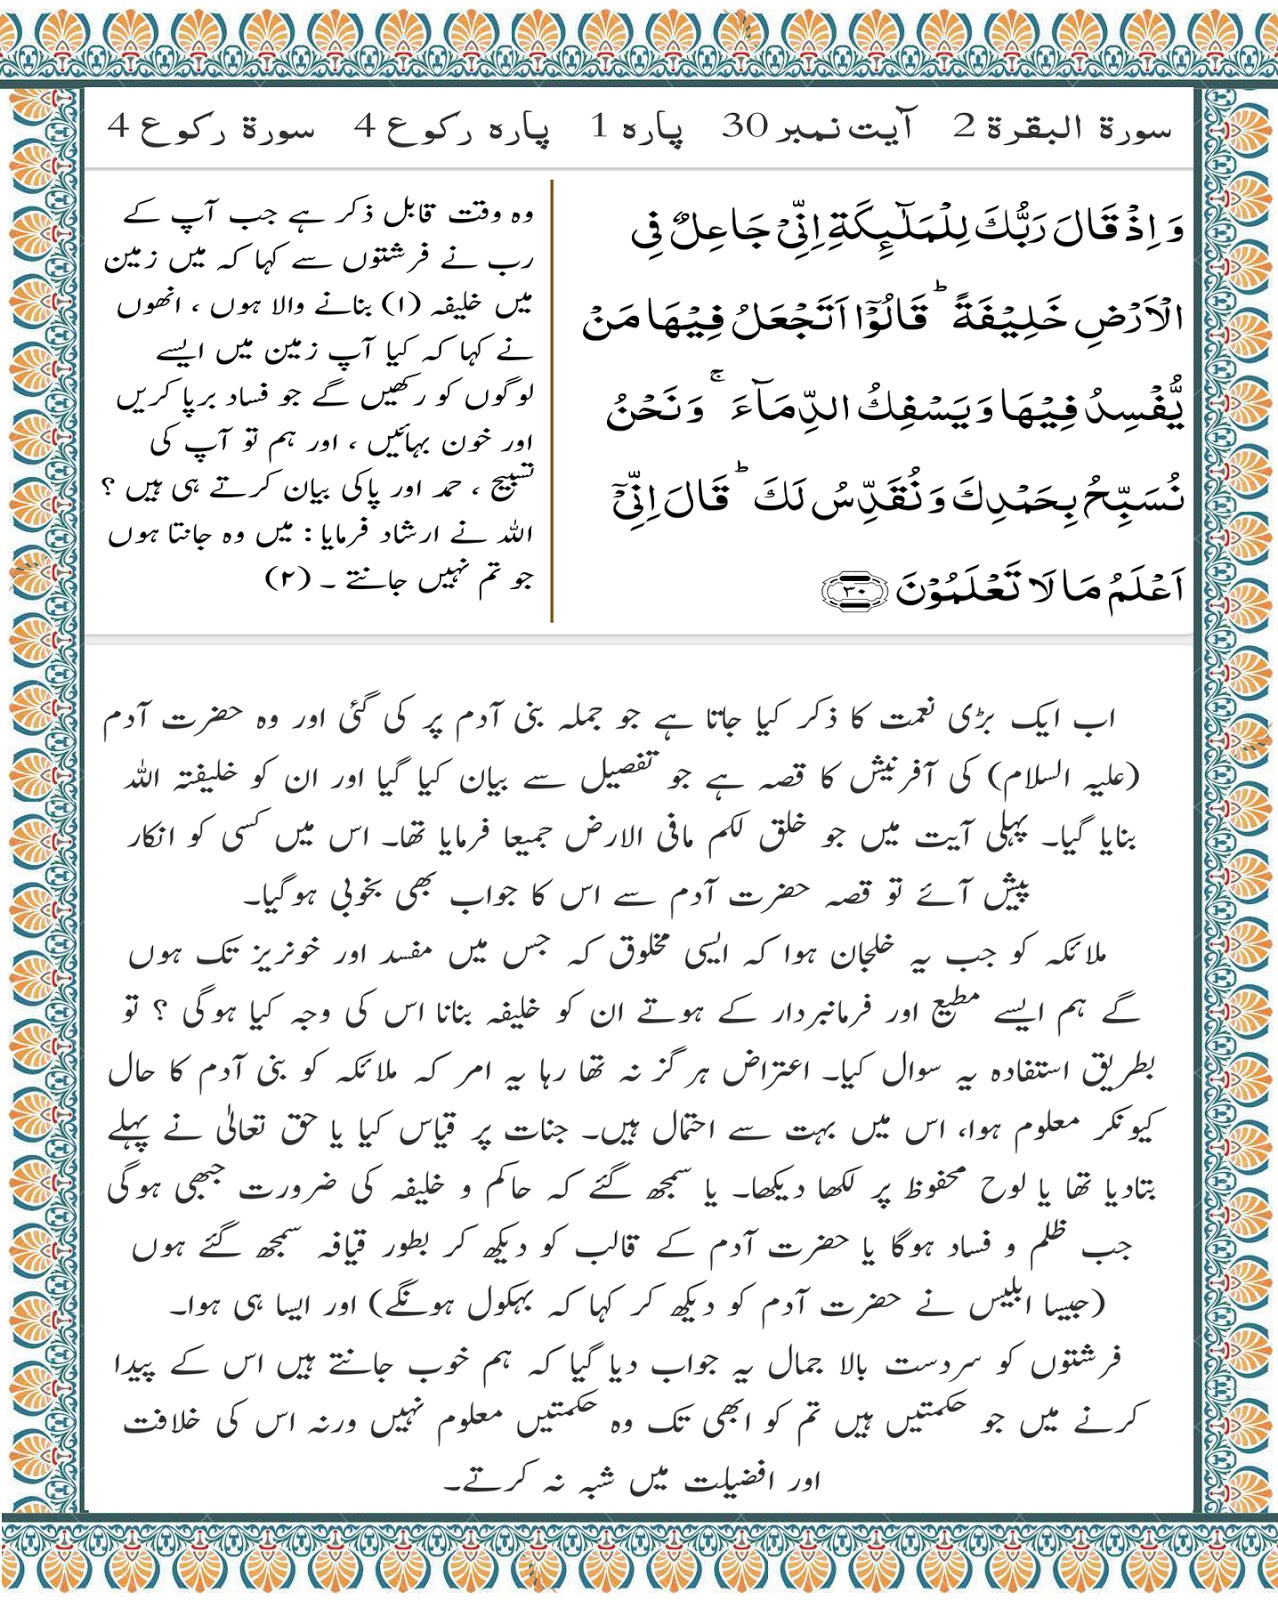 سورة البقرة 2 آیت نمبر 30 پاره 1 پاره رکوع 4 سورة رکوع 4
وَ اِذۡ قَالَ رَبُّكَ لِلۡمَلٰٓٮِٕكَةِ اِنِّىۡ جَاعِلٌ فِى
الۡاَرۡضِ خَلِيۡفَةً ؕ قَالُوۡٓا اَتَجۡعَلُ فِيۡهَا مَنۡ
يُّفۡسِدُ فِيۡهَا وَيَسۡفِكُ الدِّمَآءَ ۚ وَنَحۡنُ
نُسَبِّحُ بِحَمۡدِكَ وَنُقَدِّسُ لَـكَ ؕ قَالَ اِنِّىۡٓ
اَعۡلَمُ مَا لَا تَعۡلَمُوۡنَ ﴿۳۰﴾
وہ وقت قابل ذکر ہے جب آپ کے
رب نے فرشتوں سے کہا کہ میں زمین
میں خلیفہ (۱) بنانے والا ہوں ، انھوں
نے کہا کہ کیا آپ زمین میں ایسے
لوگوں کو رکھیں گے جو فساد برپا کریں
اور خون بہائیں ، اور ہم تو آپ کی
تسبیح ، حمد اور پاکی بیان کرتے ہی ہیں ؟
اللہ نے ارشاد فرمایا : میں وہ جانتا ہوں
جو تم نہیں جانتے ۔ (۲)
اب ایک بڑی نعمت کا ذکر کیا جاتا ہے جو جملہ بنی آدم پر کی گئی اور وہ حضرت آدم
(علیہ السلام) کی آفرنیش کا قصہ ہے جو تفصیل سے بیان کیا گیا اور ان کو خلیفتہ اللہ
بنایا گیا۔ پہلی آیت میں جو خلق لکم مافی الارض جمیعا فرمایا تھا۔ اس میں کسی کو انکار
پیش آئے تو قصہ حضرت آدم سے اس کا جواب بھی بخوبی ہوگیا۔
ملائکہ کو جب یہ خلجان ہوا کہ ایسی مخلوق کہ جس میں مفسد اور خونریز تک ہوں
گے ہم ایسے مطیع اور فرمانبردار کے ہوتے ان کو خلیفہ بنانا اس کی وجہ کیا ہوگی ؟ تو
بطریق استفادہ یہ سوال کیا۔ اعتراض ہرگز نہ تھا رہا یہ امر کہ ملائکہ کو بنی آدم کا حال
کیونکر معلوم ہوا، اس میں بہت سے احتمال ہیں۔ جنات پر قیاس کیا یا حق تعالیٰ نے پہلے
بتادیا تھا یا لوح محفوظ پر لکھا دیکھا۔ یا سمجھ گئے کہ حاکم و خلیفہ کی ضرورت جبھی ہوگی
جب ظلم و فساد ہوگا یا حضرت آدم کے قالب کو دیکھ کر بطور قیافہ سمجھ گئے ہوں
(جیسا ابلیس نے حضرت آدم کو دیکھ کر کہا کہ بہکول ہونگے) اور ایسا ہی ہوا۔
فرشتوں کو سردست بالا جمال یہ جواب دیا گیا کہ ہم خوب جانتے ہیں اس کے پیدا
کرنے میں جو حکمتیں ہیں تم کو ابھی تک وہ حکمتیں معلوم نہیں ورنہ اس کی خلافت
اور افضیلت میں شبہ نہ کرتے۔